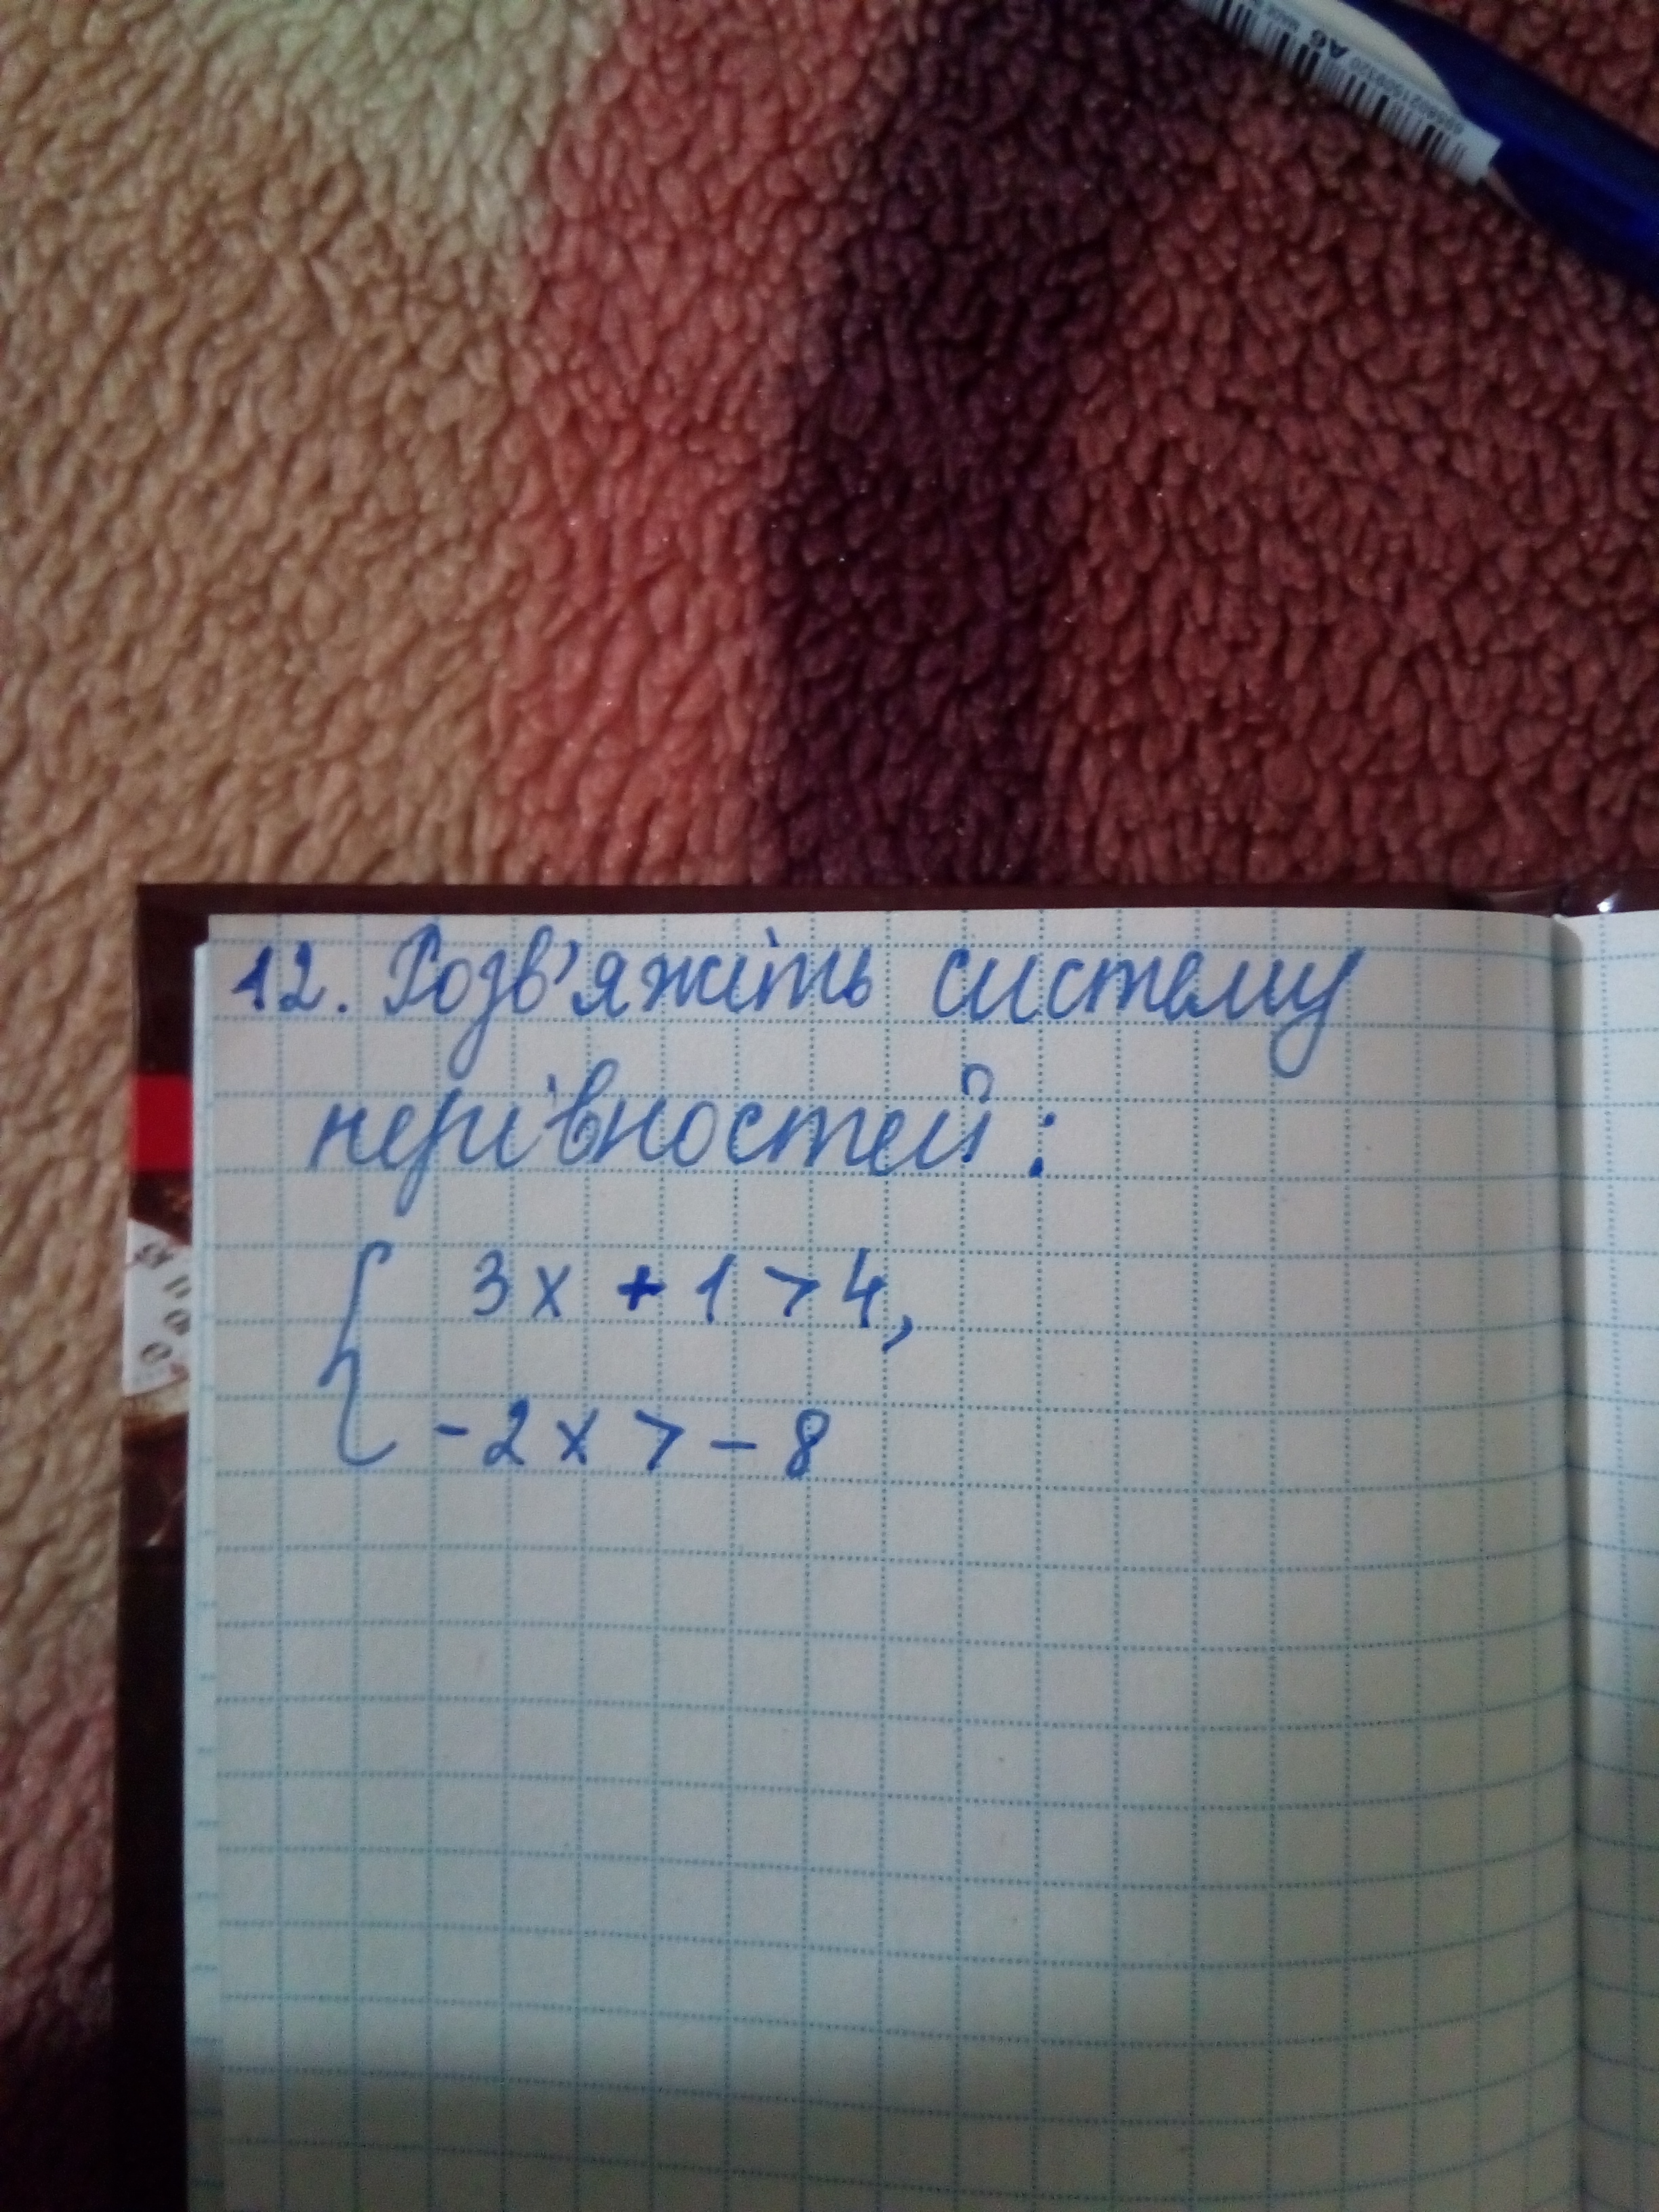 A6
12. Розв'яжіть систему
нерівностей:
3x + 1 > 4,
-2x > -8